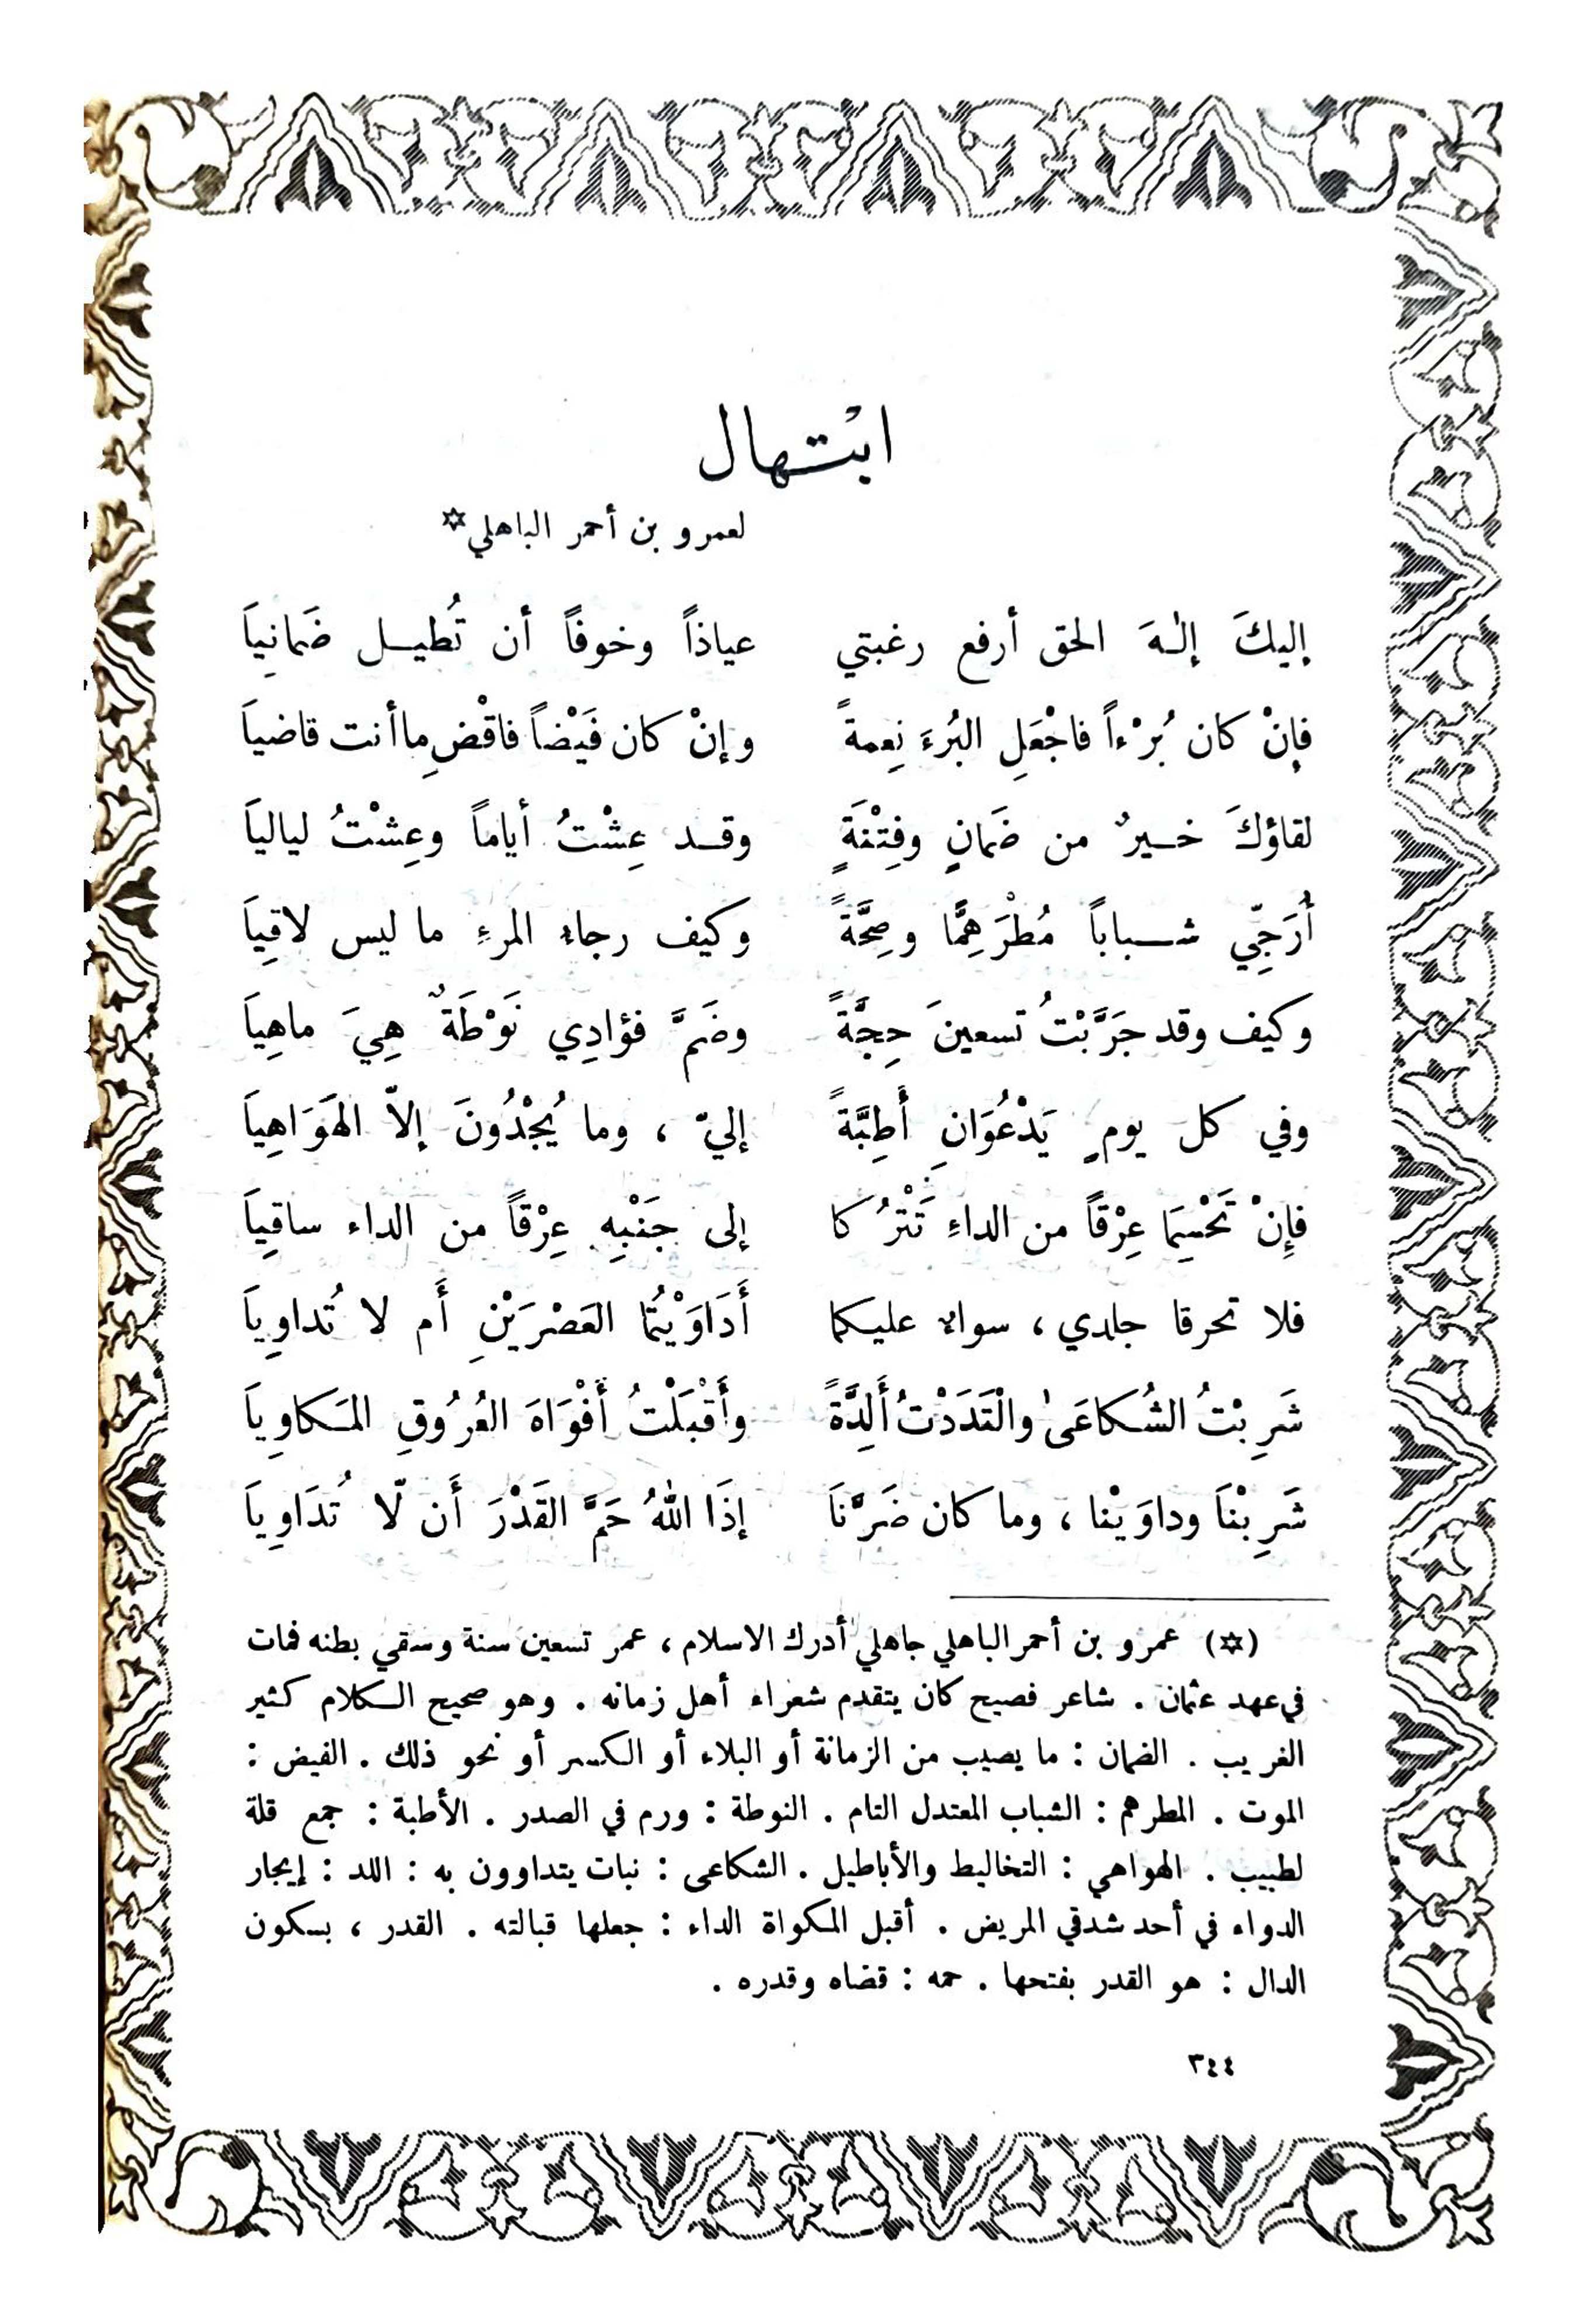 ابْتهال
لعمرو بن أحمر الباهلي*
إليكَ إلٰهَ الحق أرفع رغبتي عياذاً وخوفاً أن تُطيل ضَمانِياَ
فإنْ كان بُرْءاً فاجْعَلِ البُرءَ نِعمةً وإنْ كان فَيْضاً فاقْضِ ما أنت قاضياَ
لقاؤكَ خيرٌ من ضَمانٍ وفِتْنَةٍ وقد عِشْتُ أياماً وعِشْتُ ليالياَ
أُرَجِّي شباباً مُطْرَهِمًّا وصِحَّةً وكيف رجاءُ المرءِ ما ليس لاقِياَ
وكيف وقد جَرَّبْتُ تسعينَ حِجَّةً وضَمَّ فؤادِي نَوْطَةٌ هِيَ ماهِياَ
وفي كل يومٍ يَدْعُوَانِ أَطِبَّةً إليّ ، وما يُجْدُونَ إلاّ الهَوَاهِياَ
فإِنْ تَحْسِمَا عِرْقاً من الداءِ تَتْرُكا إلى جَنْبِهِ عِرْقاً من الداء ساقِياَ
فلا تحرقا جلدي ، سواءٌ عليكما أَدَاوَيْتُما العَصْرَيْنِ أَم لا تُداوِياَ
شَرِبْتُ الشُكاعَىٰ والْتَدَدْتُ أَلِدَّةً وأَقْبَلْتُ أَفْوَاهَ العُرُوقِ المَكاوِياَ
شَرِبْنَا وداوَيْنا ، وما كان ضَرَّنَا إذَا اللهُ حَمَّ القَدْرَ أَن لّا تُدَاوِياَ
(*) عمرو بن أحمر الباهلي جاهلي أدرك الاسلام ، عمر تسعين سنة وسقي بطنه فمات
في عهد عثمان . شاعر فصيح كان يتقدم شعراء أهل زمانه . وهو صحيح الكلام كثير
الغريب . الضمان : ما يصيب من الزمانة أو البلاء أو الكسر أو نحو ذلك . الفيض :
الموت . المطرهم : الشباب المعتدل التام . النوطة : ورم في الصدر . الأطبة : جمع قلة
لطبيب . الهواهي : التخاليط والأباطيل . الشكاعى : نبات يتداوون به : اللد : إيجار
الدواء في أحد شدقي المريض . أقبل المكواة الداء : جعلها قبالته . القدر ، بسكون
الدال : هو القدر بفتحها . حمه : قضاه وقدره .
٣٤٤